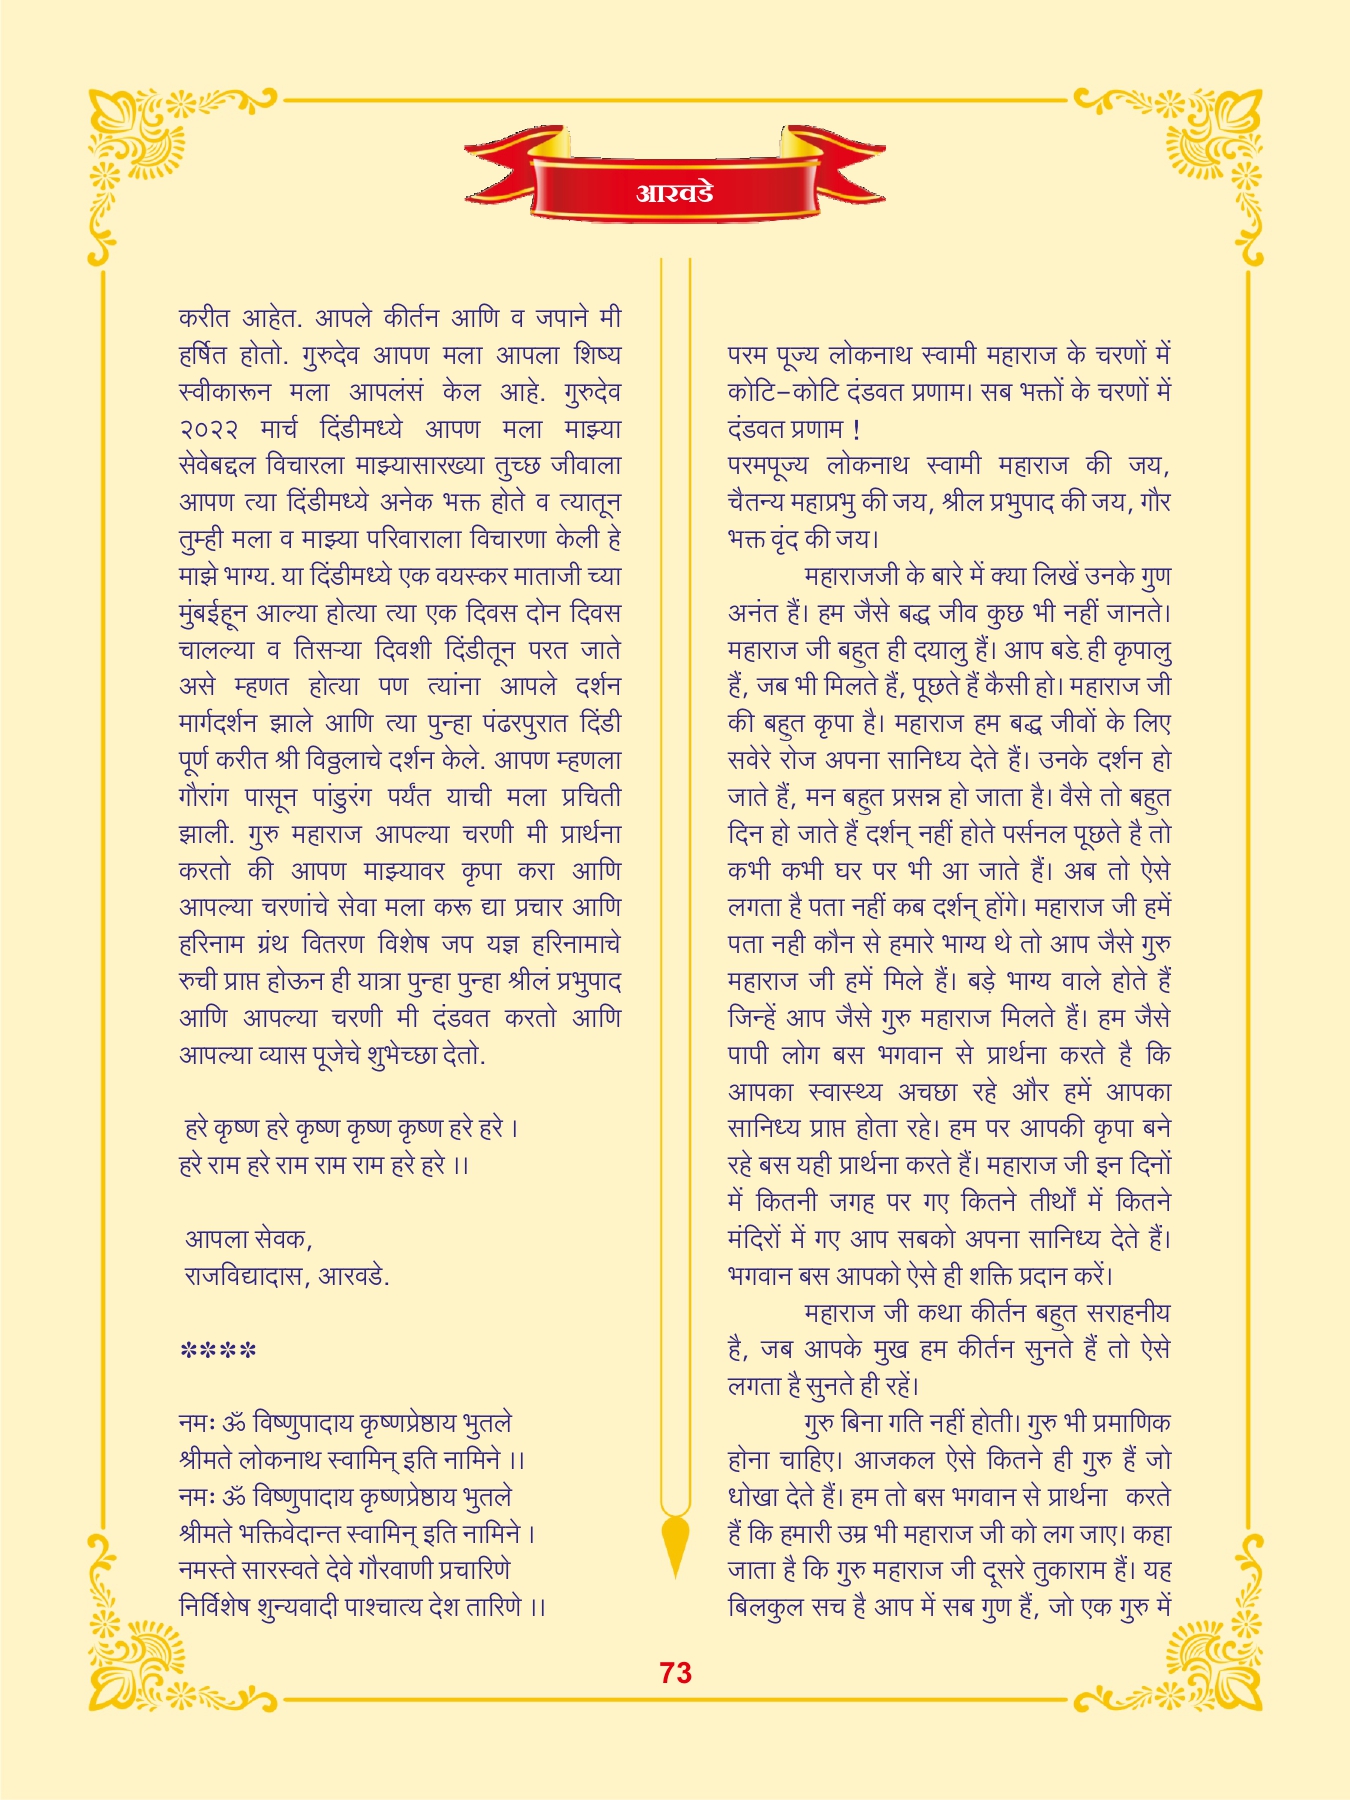 आरवडे
करीत आहेत. आपले कीर्तन आणि व जपाने मी
हर्षित होतो. गुरुदेव आपण मला आपला शिष्य
स्वीकारून मला आपलंसं केल आहे. गुरुदेव
२०२२ मार्च दिंडीमध्ये आपण मला माझ्या
सेवेबद्दल विचारला माझ्यासारख्या तुच्छ जीवाला
आपण त्या दिंडीमध्ये अनेक भक्त होते व त्यातून
तुम्ही मला व माझ्या परिवाराला विचारणा केली हे
माझे भाग्य. या दिंडीमध्ये एक वयस्कर माताजी च्या
मुंबईहून आल्या होत्या त्या एक दिवस दोन दिवस
चालल्या व तिसऱ्या दिवशी दिंडीतून परत जाते
असे म्हणत होत्या पण त्यांना आपले दर्शन
मार्गदर्शन झाले आणि त्या पुन्हा पंढरपुरात दिंडी
पूर्ण करीत श्री विठ्ठलाचे दर्शन केले. आपण म्हणला
गौरांग पासून पांडुरंग पर्यंत याची मला प्रचिती
झाली. गुरु महाराज आपल्या चरणी मी प्रार्थना
करतो की आपण माझ्यावर कृपा करा आणि
आपल्या चरणांचे सेवा मला करू द्या प्रचार आणि
हरिनाम ग्रंथ वितरण विशेष जप यज्ञ हरिनामाचे
रुची प्राप्त होऊन ही यात्रा पुन्हा पुन्हा श्रीलं प्रभुपाद
आणि आपल्या चरणी मी दंडवत करतो आणि
आपल्या व्यास पूजेचे शुभेच्छा देतो.
हरे कृष्ण हरे कृष्ण कृष्ण कृष्ण हरे हरे ।
हरे राम हरे राम राम राम हरे हरे ।।
आपला सेवक,
राजविद्यादास, आरवडे.
****
नमः ॐ विष्णुपादाय कृष्णप्रेष्ठाय भुतले
श्रीमते लोकनाथ स्वामिन् इति नामिने ।।
नमः ॐ विष्णुपादाय कृष्णप्रेष्ठाय भुतले
श्रीमते भक्तिवेदान्त स्वामिन् इति नामिने ।
नमस्ते सारस्वते देवे गौरवाणी प्रचारिणे
निर्विशेष शुन्यवादी पाश्चात्य देश तारिणे ।।
परम पूज्य लोकनाथ स्वामी महाराज के चरणों में
कोटि-कोटि दंडवत प्रणाम। सब भक्तों के चरणों में
दंडवत प्रणाम !
परमपूज्य लोकनाथ स्वामी महाराज की जय,
चैतन्य महाप्रभु की जय, श्रील प्रभुपाद की जय, गौर
भक्त वृंद की जय।
महाराजजी के बारे में क्या लिखें उनके गुण
अनंत हैं। हम जैसे बद्ध जीव कुछ भी नहीं जानते।
महाराज जी बहुत ही दयालु हैं। आप बडे. ही कृपालु
हैं, जब भी मिलते हैं, पूछते हैं कैसी हो। महाराज जी
की बहुत कृपा है। महाराज हम बद्ध जीवों के लिए
सवेरे रोज अपना सानिध्य देते हैं। उनके दर्शन हो
जाते हैं, मन बहुत प्रसन्न हो जाता है। वैसे तो बहुत
दिन हो जाते हैं दर्शन् नहीं होते पर्सनल पूछते है तो
कभी कभी घर पर भी आ जाते हैं। अब तो ऐसे
लगता है पता नहीं कब दर्शन् होंगे। महाराज जी हमें
पता नही कौन से हमारे भाग्य थे तो आप जैसे गुरु
महाराज जी हमें मिले हैं। बड़े भाग्य वाले होते हैं
जिन्हें आप जैसे गुरु महाराज मिलते हैं। हम जैसे
पापी लोग बस भगवान से प्रार्थना करते है कि
आपका स्वास्थ्य अचछा रहे और हमें आपका
सानिध्य प्राप्त होता रहे। हम पर आपकी कृपा बने
रहे बस यही प्रार्थना करते हैं। महाराज जी इन दिनों
में कितनी जगह पर गए कितने तीर्थों में कितने
मंदिरों में गए आप सबको अपना सानिध्य देते हैं।
भगवान बस आपको ऐसे ही शक्ति प्रदान करें।
महाराज जी कथा कीर्तन बहुत सराहनीय
है, जब आपके मुख हम कीर्तन सुनते हैं तो ऐसे
लगता है सुनते ही रहें।
गुरु बिना गति नहीं होती। गुरु भी प्रमाणिक
होना चाहिए। आजकल ऐसे कितने ही गुरु हैं जो
धोखा देते हैं। हम तो बस भगवान से प्रार्थना करते
हैं कि हमारी उम्र भी महाराज जी को लग जाए। कहा
जाता है कि गुरु महाराज जी दूसरे तुकाराम हैं। यह
बिलकुल सच है आप में सब गुण हैं, जो एक गुरु में
73